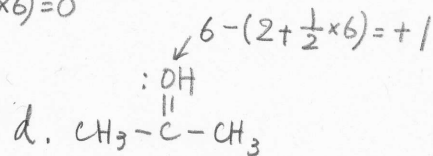 ×6)=0
6-(2+½×6)=+1
:OH
||
d. CH₃-C-CH₃